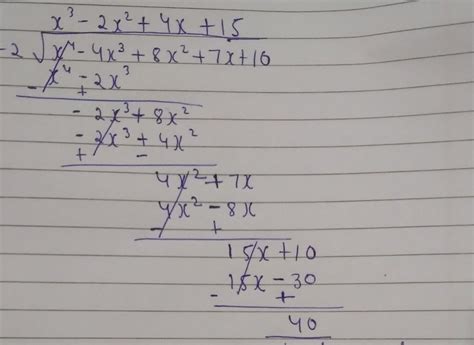 x³ - 2x² + 4x + 15
-2 √ x⁴ - 4x³ + 8x² + 7x + 10
x⁴ - 2x³
- +
- 2x³ + 8x²
- 2x³ + 4x²
+ -
4x² + 7x
4x² - 8x
- +
15x + 10
15x - 30
- +
40